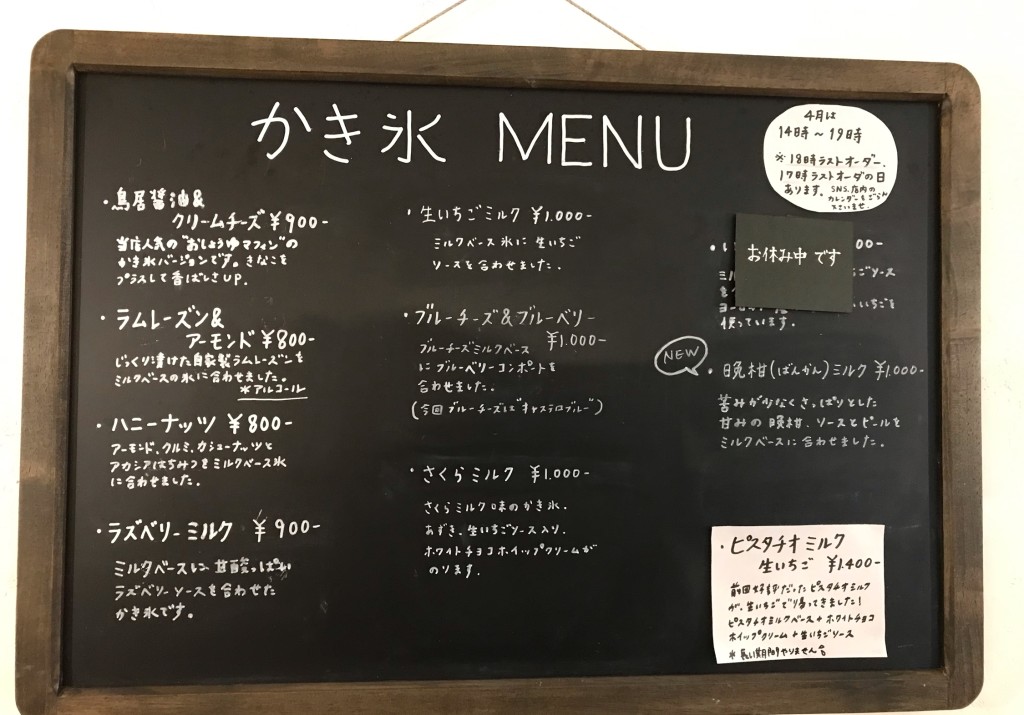 かき氷 MENU
4月は
14時～19時
※18時ラストオーダー.
17時ラストオーダの日
あります。SNS.店内の
カレンダーをごらん
下さいませ
・鳥居醤油&
クリームチーズ ¥900-
当店人気の"おしょうゆマフィン"の
かき氷バージョンです。きなこを
プラスして香ばしさUP.
・ラムレーズン&
アーモンド ¥800-
じっくり漬けた自家製ラムレーズンを
ミルクベースの氷に合わせました。
*アルコール
・ハニーナッツ ¥800-
アーモンド、クルミ、カシューナッツと
アカシアはちみつをミルクベース氷
に合わせました。
・ラズベリーミルク ¥900-
ミルクベースに甘酸っぱい
ラズベリーソースを合わせた
かき氷です。
・生いちごミルク ¥1.000-
ミルクベース氷に生いちご
ソースを合わせました.
・ブルーチーズ&ブルーベリー
¥1.000-
ブルーチーズミルクベース
にブルーベリーコンポートを
合わせました。
(今回ブルーチーズは"キャステロブルー")
・さくらミルク ¥1.000-
さくらミルク味のかき氷.
あずき、生いちごソース入り.
ホワイトチョコホイップクリームが
のります.
・い 00-
お休み中です
ミル ちごソース
を いちごを
使っています.
NEW
・晩柑(ばんかん)ミルク ¥1.000-
苦みが少なくさっぱりとした
甘みの晩柑、ソースとピールを
ミルクベースに合わせました。
・ピスタチオミルク
生いちご ¥1.400-
前回好評だったピスタチオミルク
が、生いちごで帰ってきました!
ピスタチオミルクベース+ホワイトチョコ
ホイップクリーム+生いちごソース
*長い期間やりません